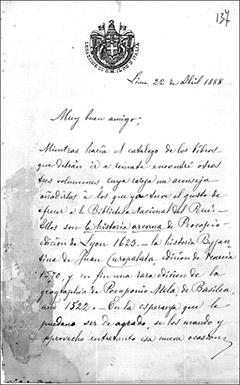 137
Lima 22 de Abril 1888
Muy buen amigo,
Mientras hacia el catalogo de los libros
que debian ir a remate encontré otros
tres volumenes cuya rareza me aconseja
añadirlos à los que ya tuve el gusto de
ofrecer à la Biblioteca Nacional del Perú.
Ellos son la historia arcana de Procopio
edicion de Lyon 1623 – la historia Byzan
tina de Juan Curopalata edicion de Venecia
1570, y en fin una rara edicion de la
geographia de Pomponio Mela de Basilea,
año 1522. – En la esperanza que le
puedan ser de agrado, se los mando y
aprovecho entretanto esa nueva ocasion